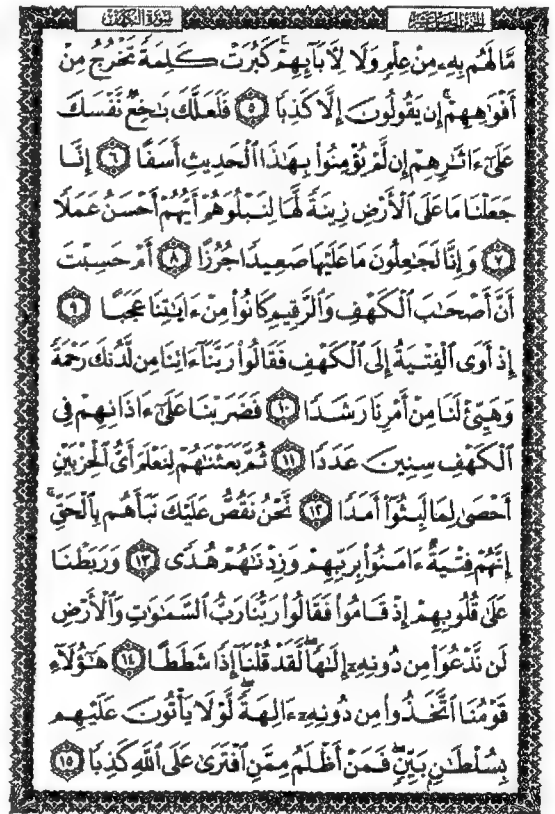 سورة الكهف
مَّا لَهُم بِهِۦ مِنْ عِلْمٍ وَلَا لِأَبَآئِهِمْ ۚ كَبُرَتْ كَلِمَةً تَخْرُجُ مِنْ
أَفْوَٰهِهِمْ ۚ إِن يَقُولُونَ إِلَّا كَذِبًا ٥ فَلَعَلَّكَ بَٰخِعٌ نَّفْسَكَ
عَلَىٰٓ ءَاثَٰرِهِمْ إِن لَّمْ يُؤْمِنُوا۟ بِهَٰذَا ٱلْحَدِيثِ أَسَفًا ٦ إِنَّا
جَعَلْنَا مَا عَلَى ٱلْأَرْضِ زِينَةً لَّهَا لِنَبْلُوَهُمْ أَيُّهُمْ أَحْسَنُ عَمَلًا
٧ وَإِنَّا لَجَٰعِلُونَ مَا عَلَيْهَا صَعِيدًا جُرُزًا ٨ أَمْ حَسِبْتَ
أَنَّ أَصْحَٰبَ ٱلْكَهْفِ وَٱلرَّقِيمِ كَانُوا۟ مِنْ ءَايَٰتِنَا عَجَبًا ٩
إِذْ أَوَى ٱلْفِتْيَةُ إِلَى ٱلْكَهْفِ فَقَالُوا۟ رَبَّنَآ ءَاتِنَا مِن لَّدُنكَ رَحْمَةً
وَهَيِّئْ لَنَا مِنْ أَمْرِنَا رَشَدًا ١٠ فَضَرَبْنَا عَلَىٰٓ ءَاذَانِهِمْ فِى
ٱلْكَهْفِ سِنِينَ عَدَدًا ١١ ثُمَّ بَعَثْنَٰهُمْ لِنَعْلَمَ أَىُّ ٱلْحِزْبَيْنِ
أَحْصَىٰ لِمَا لَبِثُوٓا۟ أَمَدًا ١٢ نَّحْنُ نَقُصُّ عَلَيْكَ نَبَأَهُم بِٱلْحَقِّ ۚ
إِنَّهُمْ فِتْيَةٌ ءَامَنُوا۟ بِرَبِّهِمْ وَزِدْنَٰهُمْ هُدًى ١٣ وَرَبَطْنَا
عَلَىٰ قُلُوبِهِمْ إِذْ قَامُوا۟ فَقَالُوا۟ رَبُّنَا رَبُّ ٱلسَّمَٰوَٰتِ وَٱلْأَرْضِ
لَن نَّدْعُوَا۟ مِن دُونِهِۦٓ إِلَٰهًا ۖ لَّقَدْ قُلْنَآ إِذًا شَطَطًا ١٤ هَٰٓؤُلَآءِ
قَوْمُنَا ٱتَّخَذُوا۟ مِن دُونِهِۦٓ ءَالِهَةً ۖ لَّوْلَا يَأْتُونَ عَلَيْهِم
بِسُلْطَٰنٍۭ بَيِّنٍ ۖ فَمَنْ أَظْلَمُ مِمَّنِ ٱفْتَرَىٰ عَلَى ٱللَّهِ كَذِبًا ١٥